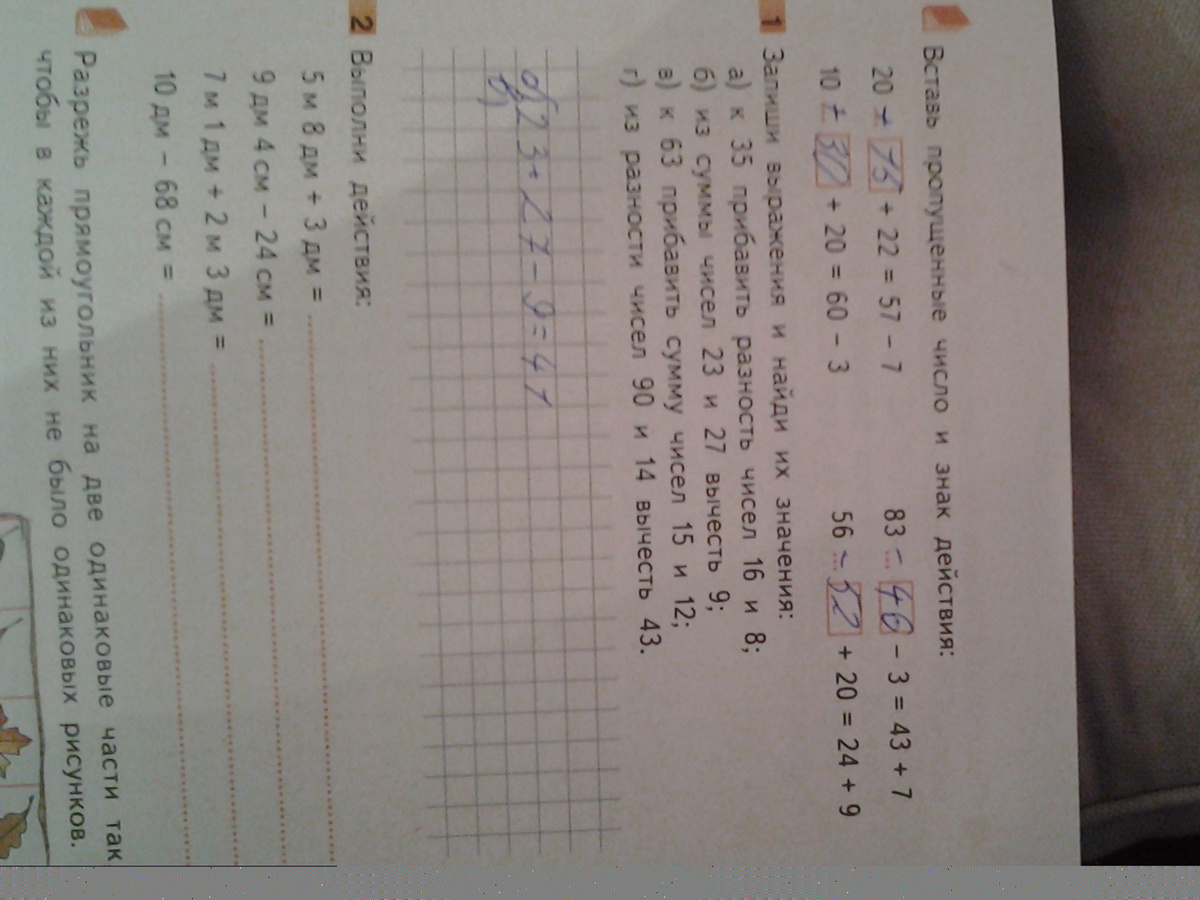 Вставь пропущенные число и знак действия:
20 + 15 + 22 = 57 – 7
83 – 46 – 3 = 43 + 7
10 + + 20 = 60 – 3
56 – 52 + 20 = 24 + 9
1 Запиши выражения и найди их значения:
а) к 35 прибавить разность чисел 16 и 8;
б) из суммы чисел 23 и 27 вычесть 9;
в) к 63 прибавить сумму чисел 15 и 12;
г) из разности чисел 90 и 14 вычесть 43.
23+27-9=41
в)
2 Выполни действия:
5 м 8 дм + 3 дм =
9 дм 4 см – 24 см =
7 м 1 дм + 2 м 3 дм =
10 дм – 68 см =
Разрежь прямоугольник на две одинаковые части так
чтобы в каждой из них не было одинаковых рисунков.